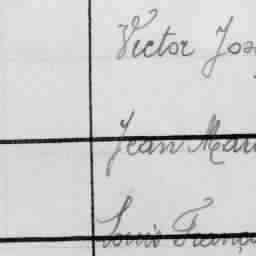 Victor Jos
Jean Mari
Louis França